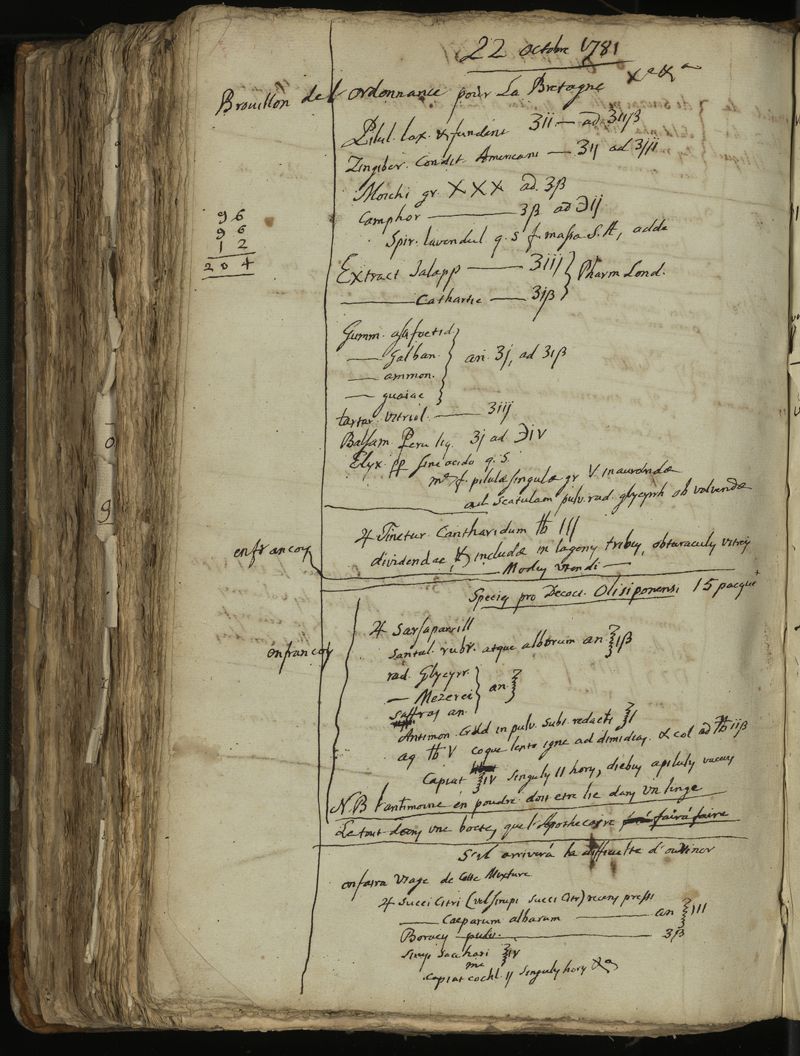 22 octobre 1781
Brouillon de l'ordonnance pour La Bretagne
Pilul. lax. & fundent ʒii — ad ʒiiß
Zingiber. Condit. Americani — ʒij ad ʒiij
Moschi gr. XXX ad ʒß
Camphor — ʒß ad ℈ij
Spir. lavendul q. s. f. massa S. A, adde
Extract Jalapp — ʒiij } Pharm Lond.
— Cathartic — ʒiß
Gumm. assfoetid
— Galban.
— ammon.
— guaiac
an. ʒj, ad ʒiß
tartar vitriol. — ʒiij
Balsam Peru liq. ʒj ad ℈iv
Elyx. pp sine acido q. s.
f. pilulæ singulæ gr V inaurandæ
aut Scatulam pulv. rad. glycyrrh obvolvendæ
96
96
12
204
en francoy
♃ Tinctur. Cantharidum ℔ III
dividendae, & includæ in lageny tribuy, obturaculy vitrey
Moduy utendi —
Specieg pro Decoct. Olisiponensi 15 pacque
en francoy
♃ Sarsaparill
Santal. rubr. atque alborum an ℥iß
rad. Glycyrr.
— Mezerei } an ℥
Saffras an.
Antimon. Crud in pulv. subt. redacti ℥j
aq ℔ V coque lento igne ad dimidiay. & col ad ℔iiß
Capiat ℥iv singuly II hory, diebuy a piluly vacuuy
N.B l'antimoine en poudre doit etre lie dany un linge
Le tout dany une boete, que l'Apothecaire faira faire
S'il arrivera la difficulte d'ouriner
on faira Usage de Cette Mixture
♃ Succi Citri (vel sirupi Succi Citr) receny pressi
— Caeparum albarum — an ℥III
Boracy pulv. — ʒß
Sirup Sacchari ℥iv
mc
Capiat cochl. ij singuly hory